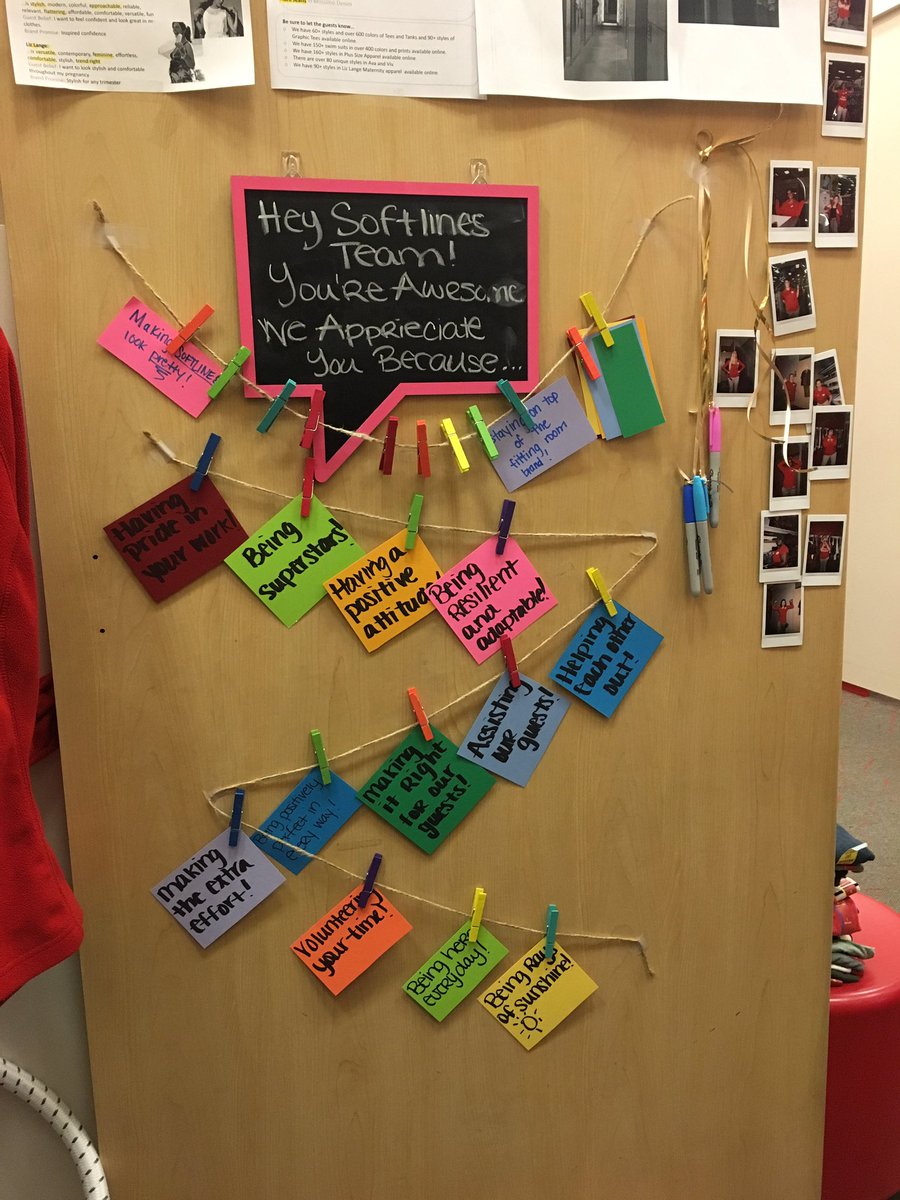 is stylish, modern, colorful, approachable, reliable,
relevant, flattering, affordable, comfortable, versatile, fun
Guest Belief: I want to feel confident and look great in my
clothes.
Brand Promise: Inspired confidence
Liz Lange:
is versatile, contemporary, feminine, effortless,
comfortable, stylish, trend right
Guest Belief: I want to look stylish and comfortable
throughout my pregnancy
Brand Promise: Stylish for any trimester
Be sure to let the guests know...
We have 60+ styles and over 600 colors of Tees and Tanks and 90+ styles of
Graphic Tees available online.
We have 150+ swim suits in over 400 colors and prints available online.
We have 160+ styles in Plus Size Apparel available online
There are over 80 unique styles in Ava and Viv
We have 90+ styles in Liz Lange Maternity apparel available online
Hey Softlines
Team!
You're Awesome
We Apprieciate
You Because...
Making SOFTLINES
look pretty!
Staying on top
of the
fitting room
brand!
Having
pride in
your work!
Being
superstars!
Having a
positive
attitude!
Being
Resilient
and
adaptable!
Helping
each other
out!
Assisting
our
guests!
Making
it Right
for our
guests!
Being positively
perfect in
every way!
Making
the extra
effort!
Volunteering
your time!
Being here
everyday!
Being Rays
of sunshine!